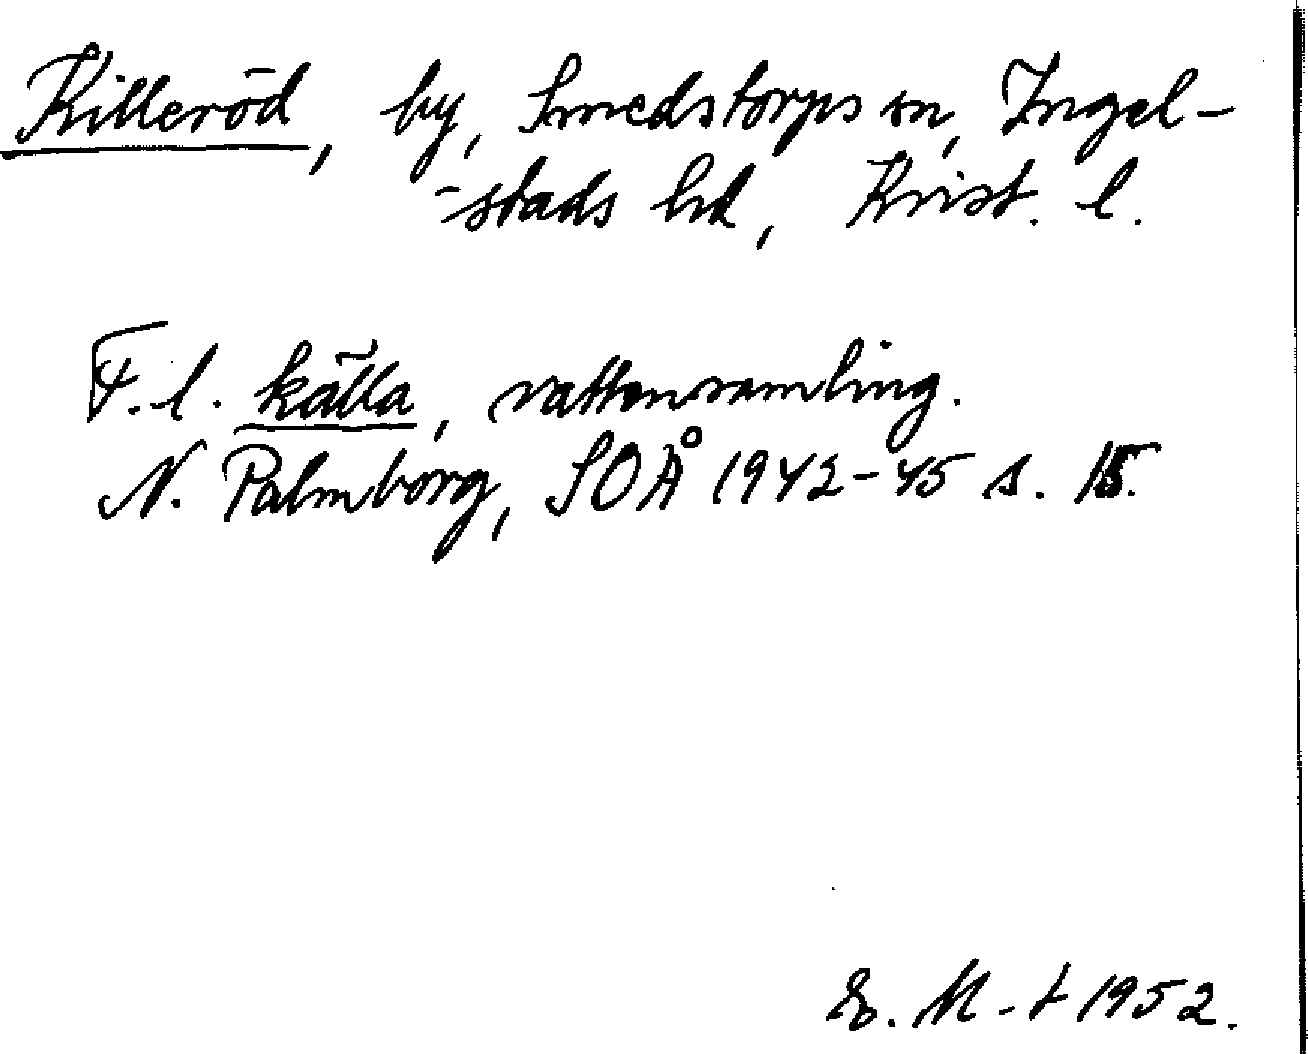 Killeröd, by, Smedstorps sn, Ingel-
-stads hd, Krist. l.
F.l. källa, vattensamling.
N. Palmborg, SOÅ 1942-45 s. 15.
E. M-t 1952.